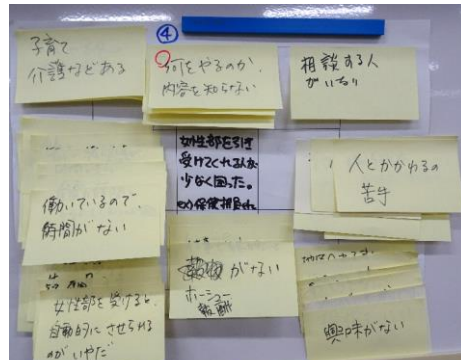 ④
子育て
介護などある
何をやるのか、
内容を知らない
相談する人
がいない
女性部を引き
受けてくれる人が
少なく困った。
人とかかわるの
苦手
働いているので、
時間がない
がない
ホーシュー
報酬
女性部を受けると、
自動的にさせられる
のがいやだ
興味がない